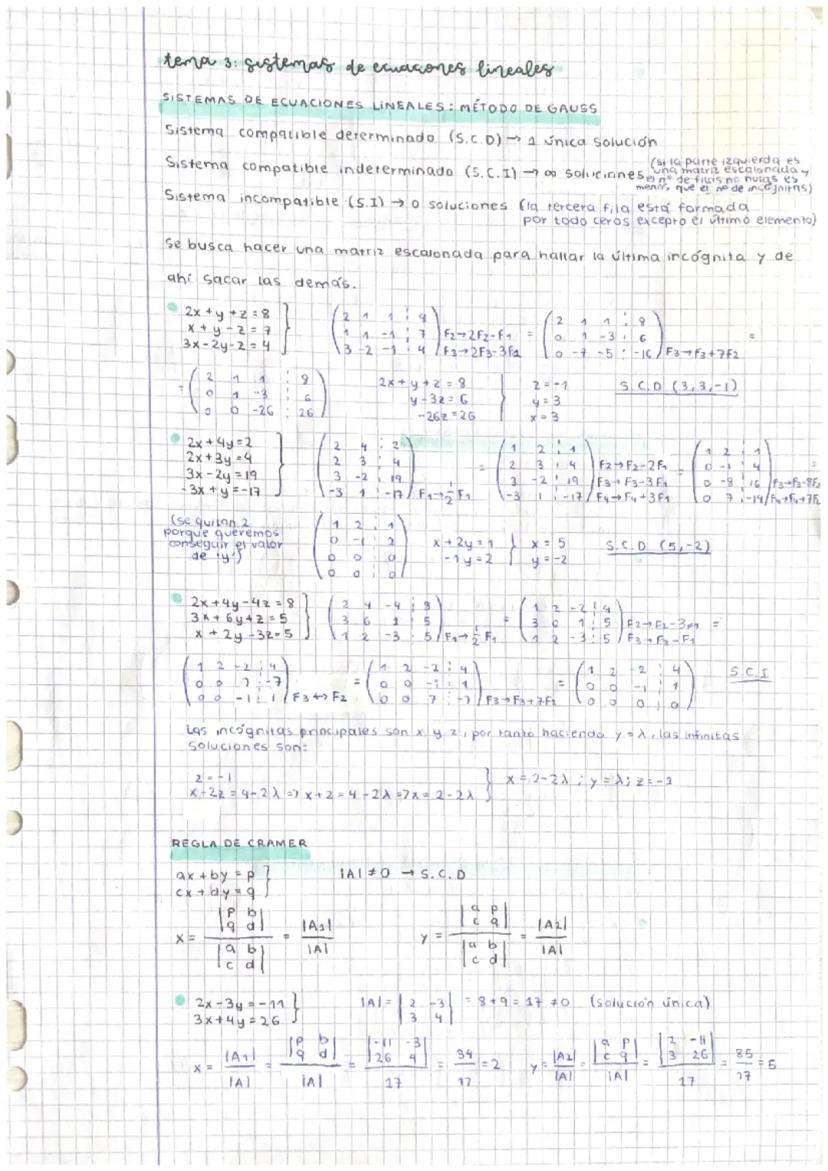 tema 3: sistemas de ecuaciones lineales
SISTEMAS DE ECUACIONES LINEALES: MÉTODO DE GAUSS
Sistema compatible determinado (S.C.D) → 1 única solución
Sistema compatible indeterminado (S.C.I) → ∞ soluciones (si la parte izquierda es una matriz escalonada y el nº de filas no nulas es menor que el nº de incógnitas)
Sistema incompatible (S.I) → 0 soluciones (la tercera fila está formada
por todo ceros excepto el último elemento)
Se busca hacer una matriz escalonada para hallar la última incógnita y de
ahí sacar las demás.
2x + y + z = 8
x + y - z = 7
3x - 2y - z = 4
F2→2F2-F1
F3→2F3-3F1
F3→F3+7F2
2 1 1 : 8
0 1 -3 : 6
0 0 -26 : 26
2x + y + z = 8
y - 3z = 6
-26z = 26
z = -1
y = 3
x = 3
S.C.D (3,3,-1)
2x + 4y = 2
2x + 3y = 4
3x - 2y = 19
-3x + y = -17
2 4 : 2
2 3 : 4
3 -2 : 19
-3 1 : -17 F1→1/2 F1
1 2 : 1
2 3 : 4 F2→F2-2F1
3 -2 : 19 F3→F3-3F1
-3 1 : -17 F4→F4+3F1
1 2 : 1
0 -1 : 4
0 -8 : 16 F3→F3-8F2
0 7 : -14 F4→F4+7F2
(se quitan 2
porque queremos
conseguir el valor
de 'y')
1 2 : 1
0 -1 : 2
0 0 : 0
0 0 : 0
x + 2y = 1
-1y = 2
x = 5
y = -2
S.C.D (5,-2)
2x + 4y - 4z = 8
3x + 6y + z = 5
x + 2y - 3z = 5
2 4 -4 : 8
3 6 1 : 5
1 2 -3 : 5 F1→1/2 F1
F2→F2-3F1
F3→F3-F1
1 2 -2 : 4
0 0 7 : -7
0 0 -1 : 1 F3↔F2
1 2 -2 : 4
0 0 -1 : 1
0 0 7 : -7 F3→F3+7F2
1 2 -2 : 4
0 0 -1 : 1
0 0 0 : 0
S.C.I
Las incógnitas principales son x y z, por tanto haciendo y = λ, las infinitas
soluciones son:
z = -1
x - 2z = 4 - 2λ => x + 2 = 4 - 2λ => x = 2 - 2λ
x = 2 - 2λ ; y = λ ; z = -1
REGLA DE CRAMER
ax + by = p
cx + dy = q
|A| ≠ 0 → S.C.D
x = |p b; q d| / |a b; c d| = |A1| / |A|
y = |a p; c q| / |a b; c d| = |A2| / |A|
2x - 3y = -11
3x + 4y = 26
|A| = |2 -3; 3 4| = 8 + 9 = 17 ≠ 0 (solución única)
x = |A1| / |A| = |p b; q d| / |A| = |-11 -3; 26 4| / 17 = 34 / 17 = 2
y = |A2| / |A| = |a p; c q| / |A| = |2 -11; 3 26| / 17 = 85 / 17 = 5